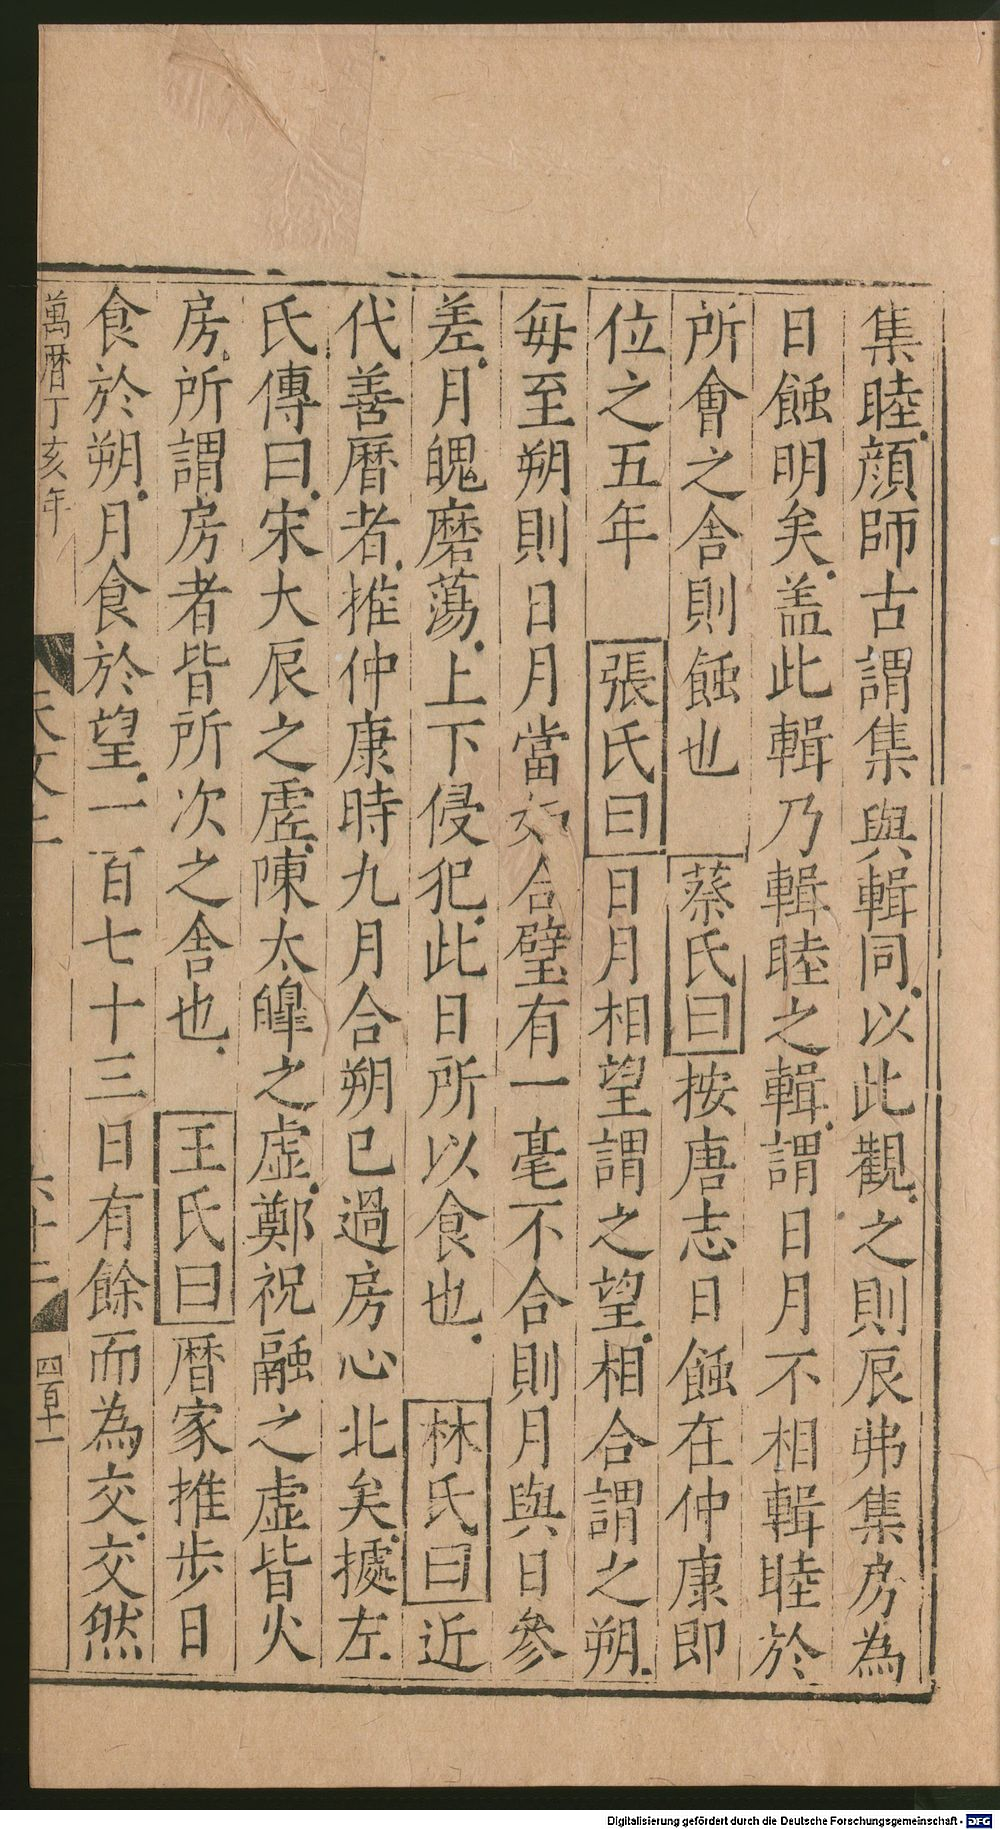 集睦顔師古謂集與輯同以此觀之則辰弗集房為
日蝕明矣盖此輯乃輯睦之輯謂日月不相輯睦於
所會之舎則蝕也 蔡氏曰按唐志日蝕在仲康即
位之五年 張氏曰日月相望謂之望相合謂之朔
每至朔則日月當如合璧有一毫不合則月與日參
差月魄磨蕩上下侵犯此日所以食也 林氏曰近
代善曆者推仲康時九月合朔已過房心北矣據左
氏傳曰宋大辰之虛陳太皥之虛鄭祝融之虛皆火
房所謂房者皆所次之舎也 王氏曰曆家推步日
食於朔月食於望一百七十三日有餘而為交交然
萬曆丁亥年 天文上 六十二 四百十一
Digitalisierung gefördert durch die Deutsche Forschungsgemeinschaft - DFG